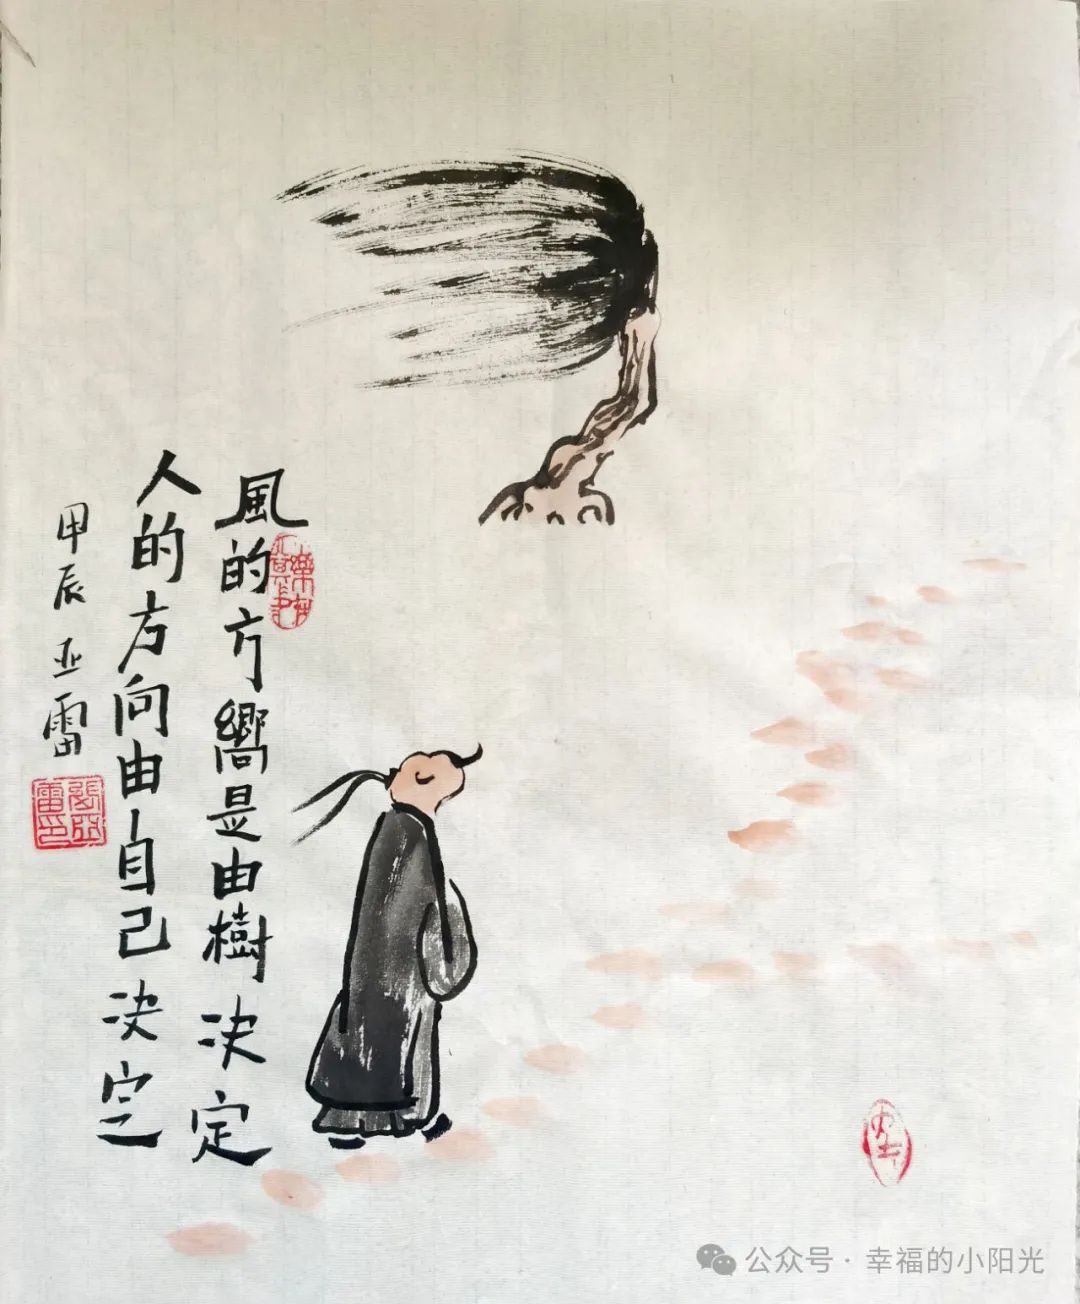 風的方嚮是由樹决定
人的方向由自己决定
甲辰 亚雷
公众号 · 幸福的小阳光